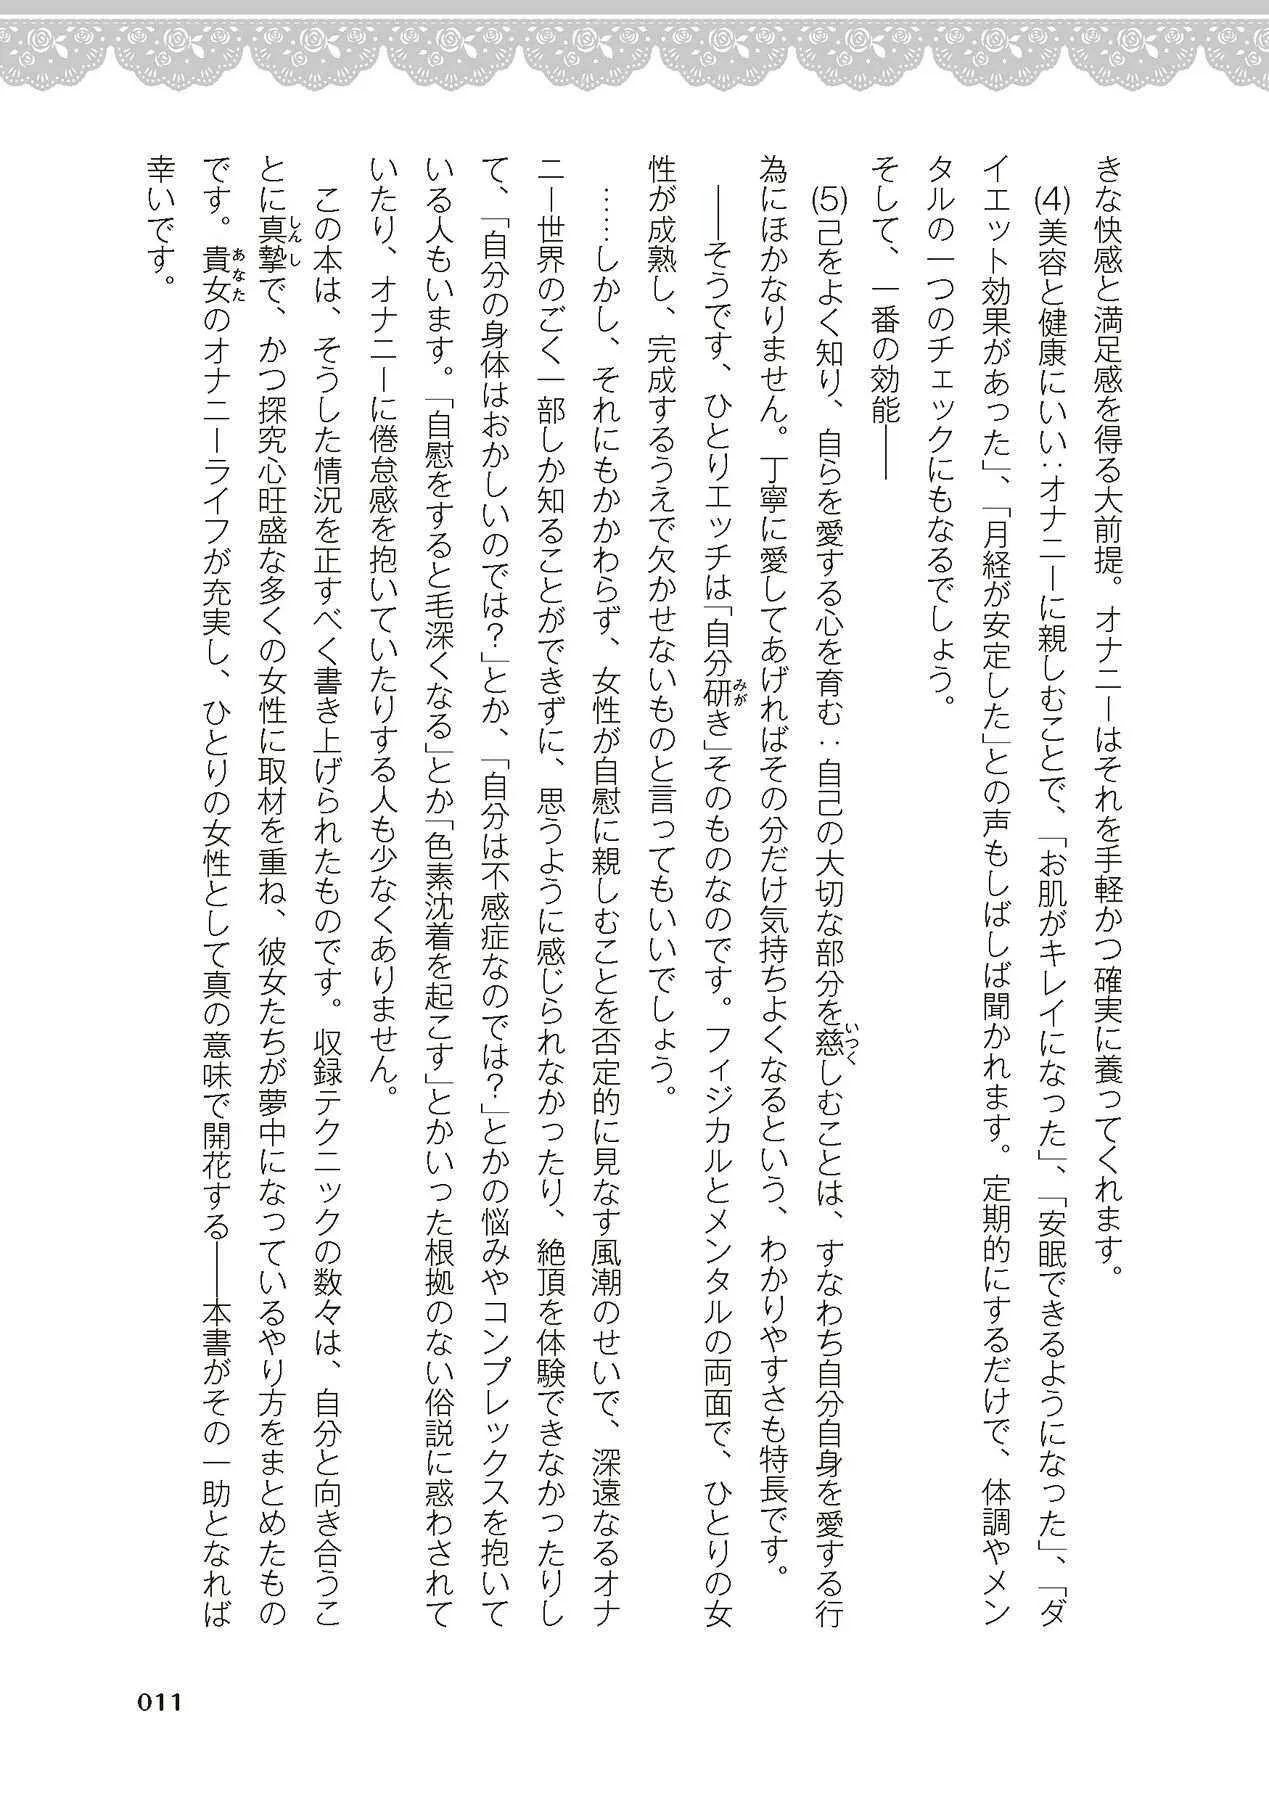 きな快感と満足感を得る大前提。オナニーはそれを手軽かつ確実に養ってくれます。
(4)美容と健康にいい:オナニーに親しむことで、「お肌がキレイになった」、「安眠できるようになった」、「ダ
イエット効果があった」、「月経が安定した」との声もしばしば聞かれます。定期的にするだけで、体調やメン
タルの一つのチェックにもなるでしょう。
そして、一番の効能――
(5)己をよく知り、自らを愛する心を育む:自己の大切な部分を慈しむことは、すなわち自分自身を愛する行
為にほかなりません。丁寧に愛してあげればその分だけ気持ちよくなるという、わかりやすさも特長です。
――そうです、ひとりエッチは「自分研き」そのものなのです。フィジカルとメンタルの両面で、ひとりの女
性が成熟し、完成するうえで欠かせないものと言ってもいいでしょう。
……しかし、それにもかかわらず、女性が自慰に親しむことを否定的に見なす風潮のせいで、深遠なるオナ
ニー世界のごく一部しか知ることができずに、思うように感じられなかったり、絶頂を体験できなかったりし
て、「自分の身体はおかしいのでは?」とか、「自分は不感症なのでは?」とかの悩みやコンプレックスを抱いて
いる人もいます。「自慰をすると毛深くなる」とか「色素沈着を起こす」とかいった根拠のない俗説に惑わされて
いたり、オナニーに倦怠感を抱いていたりする人も少なくありません。
この本は、そうした情況を正すべく書き上げられたものです。収録テクニックの数々は、自分と向き合うこ
とに真摯で、かつ探究心旺盛な多くの女性に取材を重ね、彼女たちが夢中になっているやり方をまとめたもの
です。貴女のオナニーライフが充実し、ひとりの女性として真の意味で開花する――本書がその一助となれば
幸いです。
011